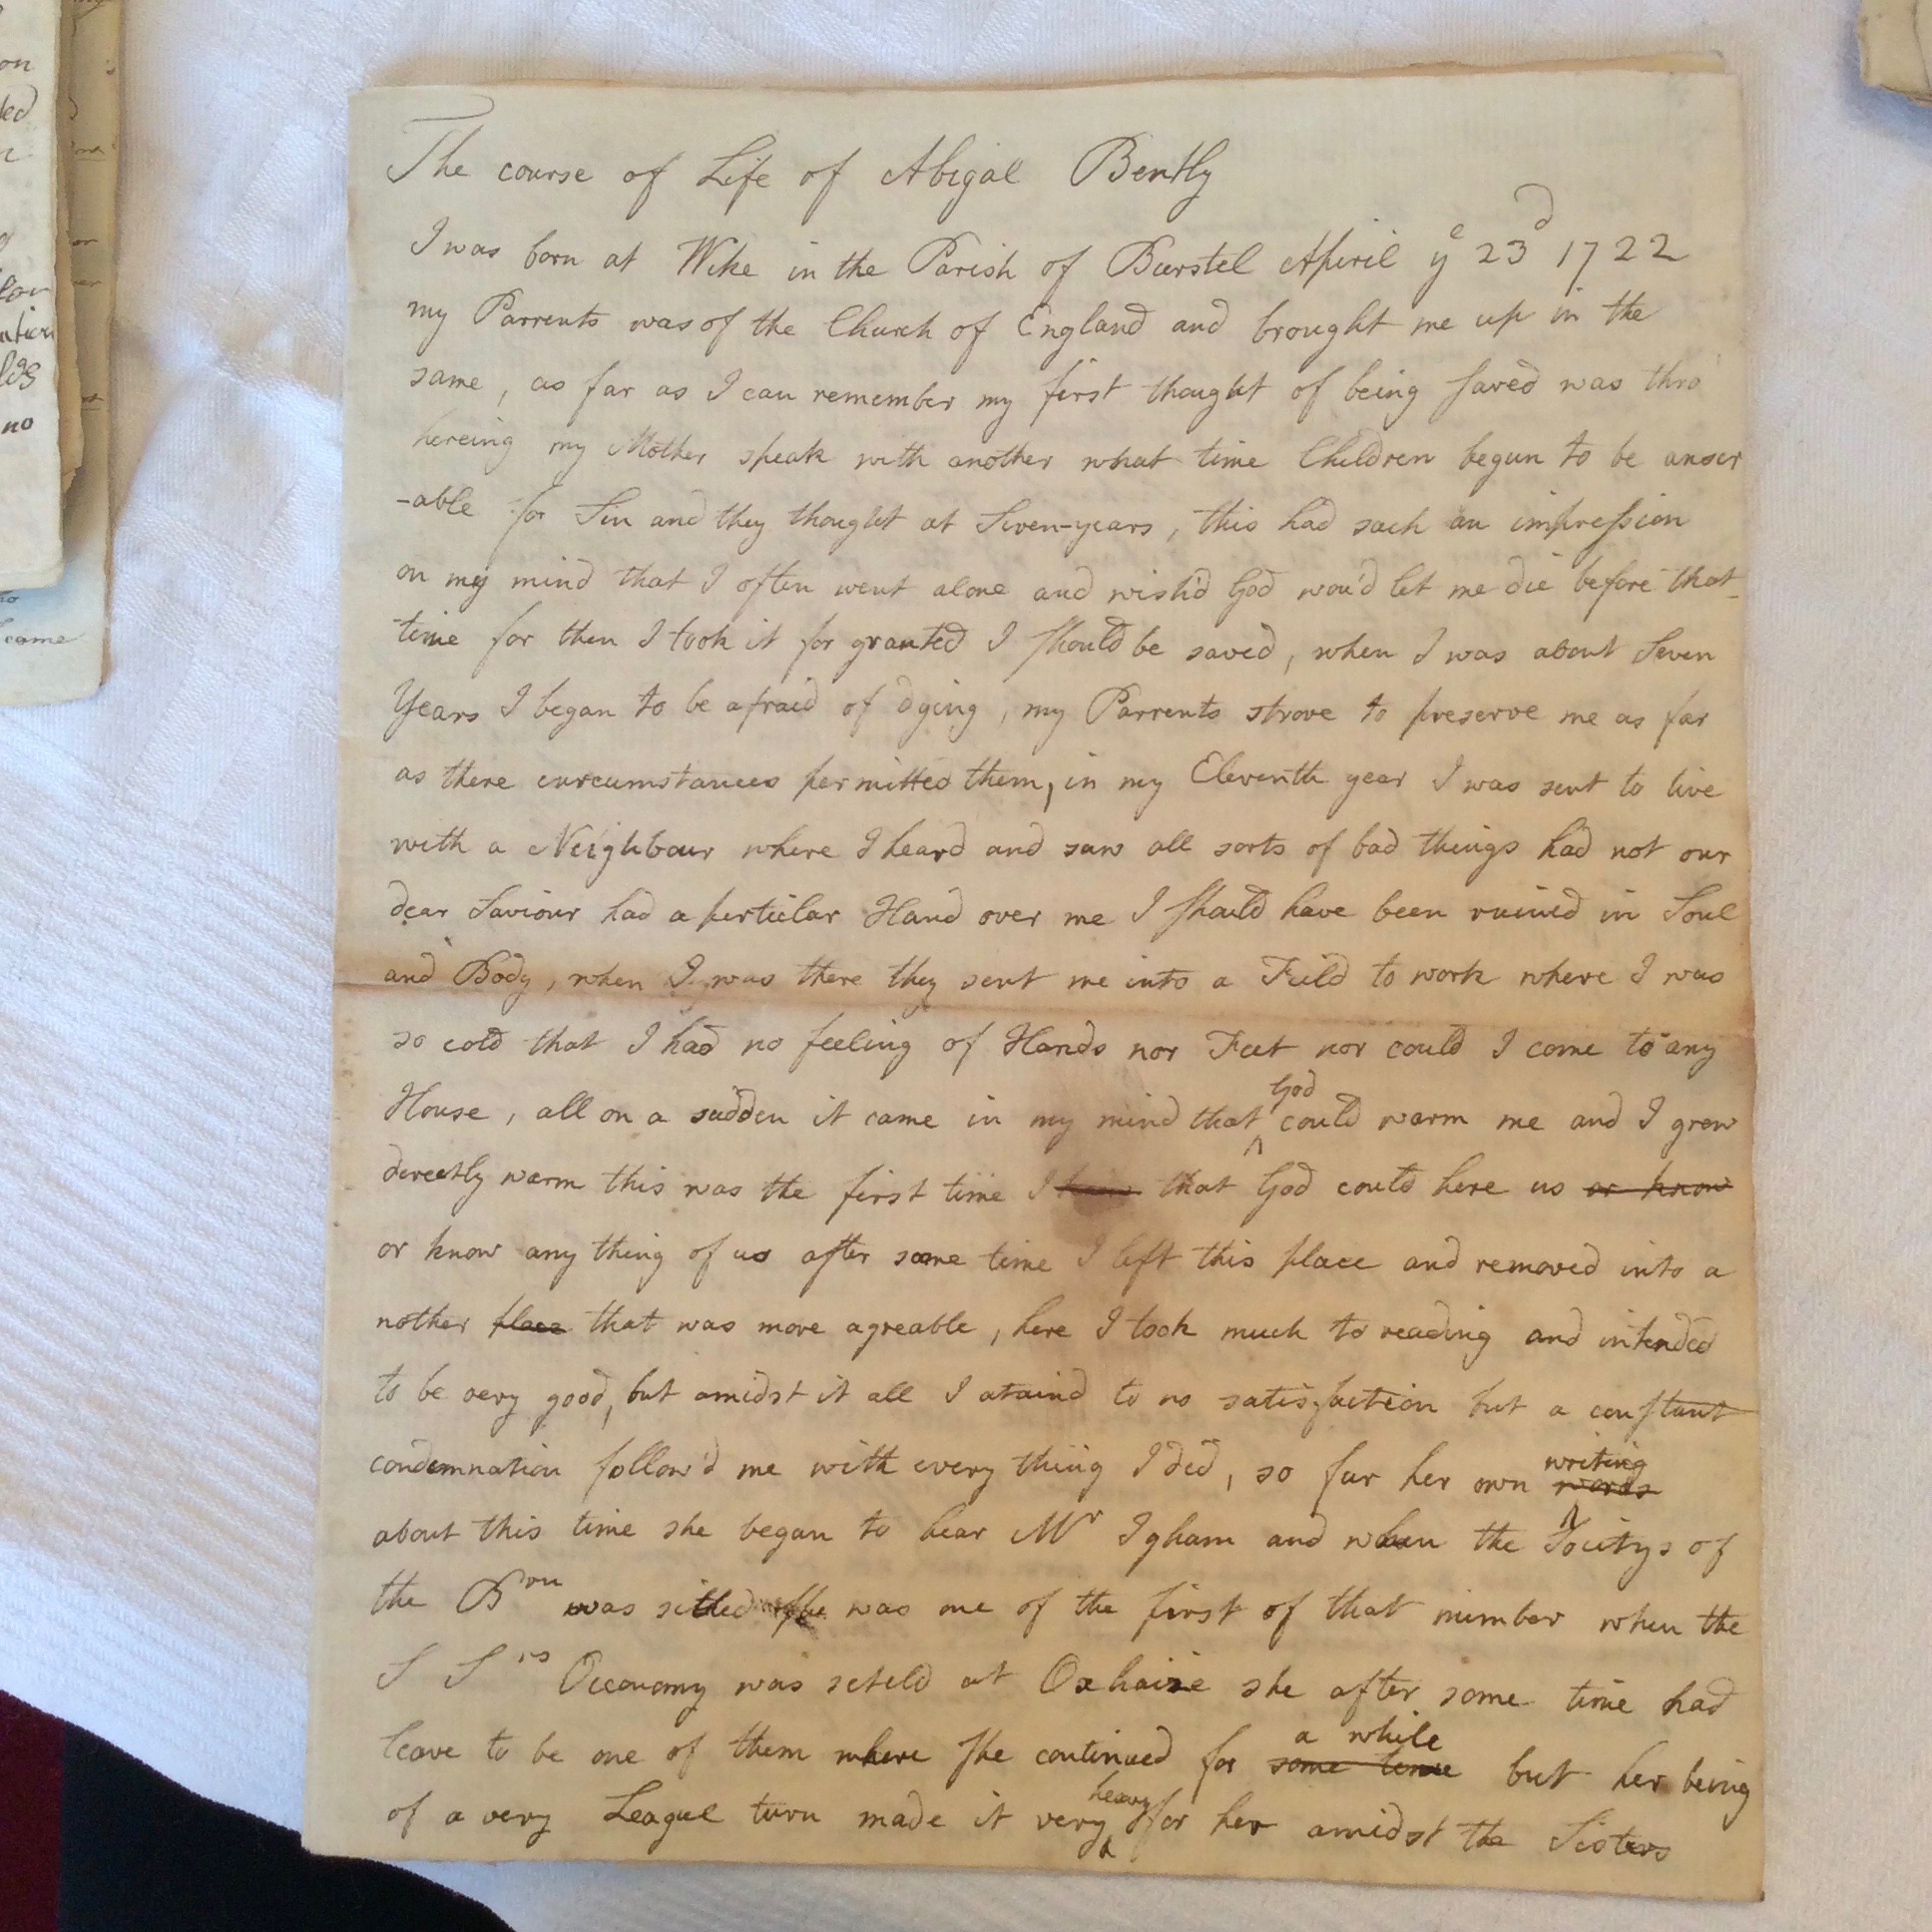 The course of Life of Abigal Bently
I was born at Wike in the Parish of Burstel Apiril ye 23d 1722
my Parrents was of the Church of England and brought me up in the
same, as far as I can remember my first thought of being saved was thro
hereing my Mother speak with another what time Children begun to be anser
-able for Sin and they thought at Seven-years, this had such an impression
on my mind that I often went alone and wish'd God wou'd let me die before that
time for then I took it for granted I should be saved, when I was about Seven
Years I began to be afraid of dying, my Parrents strove to preserve me as far
as there curcumstances permitted them, in my Eleventh year I was sent to live
with a Neighbour where I heard and saw all sorts of bad things had not our
dear Saviour had a perticlar Hand over me I should have been ruined in Soul
and Body, when I was there they sent me into a Feild to work where I was
so cold that I had no feeling of Hands nor Feet nor could I come to any
House, all on a sudden it came in my mind that God could warm me and I grew
derectly warm this was the first time I knew that God could here us or know
or know any thing of us after some time I left this place and removed into a
nother place that was more agreable, here I took much to reading and intended
to be very good, but amidst it all I ataind to no satisfaction but a constant
condemnation follow'd me with every thing I did, so far her own words writing
about this time she began to hear Mr Igham and when the Socitys of
the Bren was setled she was one of the first of that number when the
S Srs Oeconomy was seteld at Oxhaise she after some time had
leave to be one of them where she continued for some time a while but her being
of a very League turn made it very heavy for her amidst the Sisters
on
led
no
came